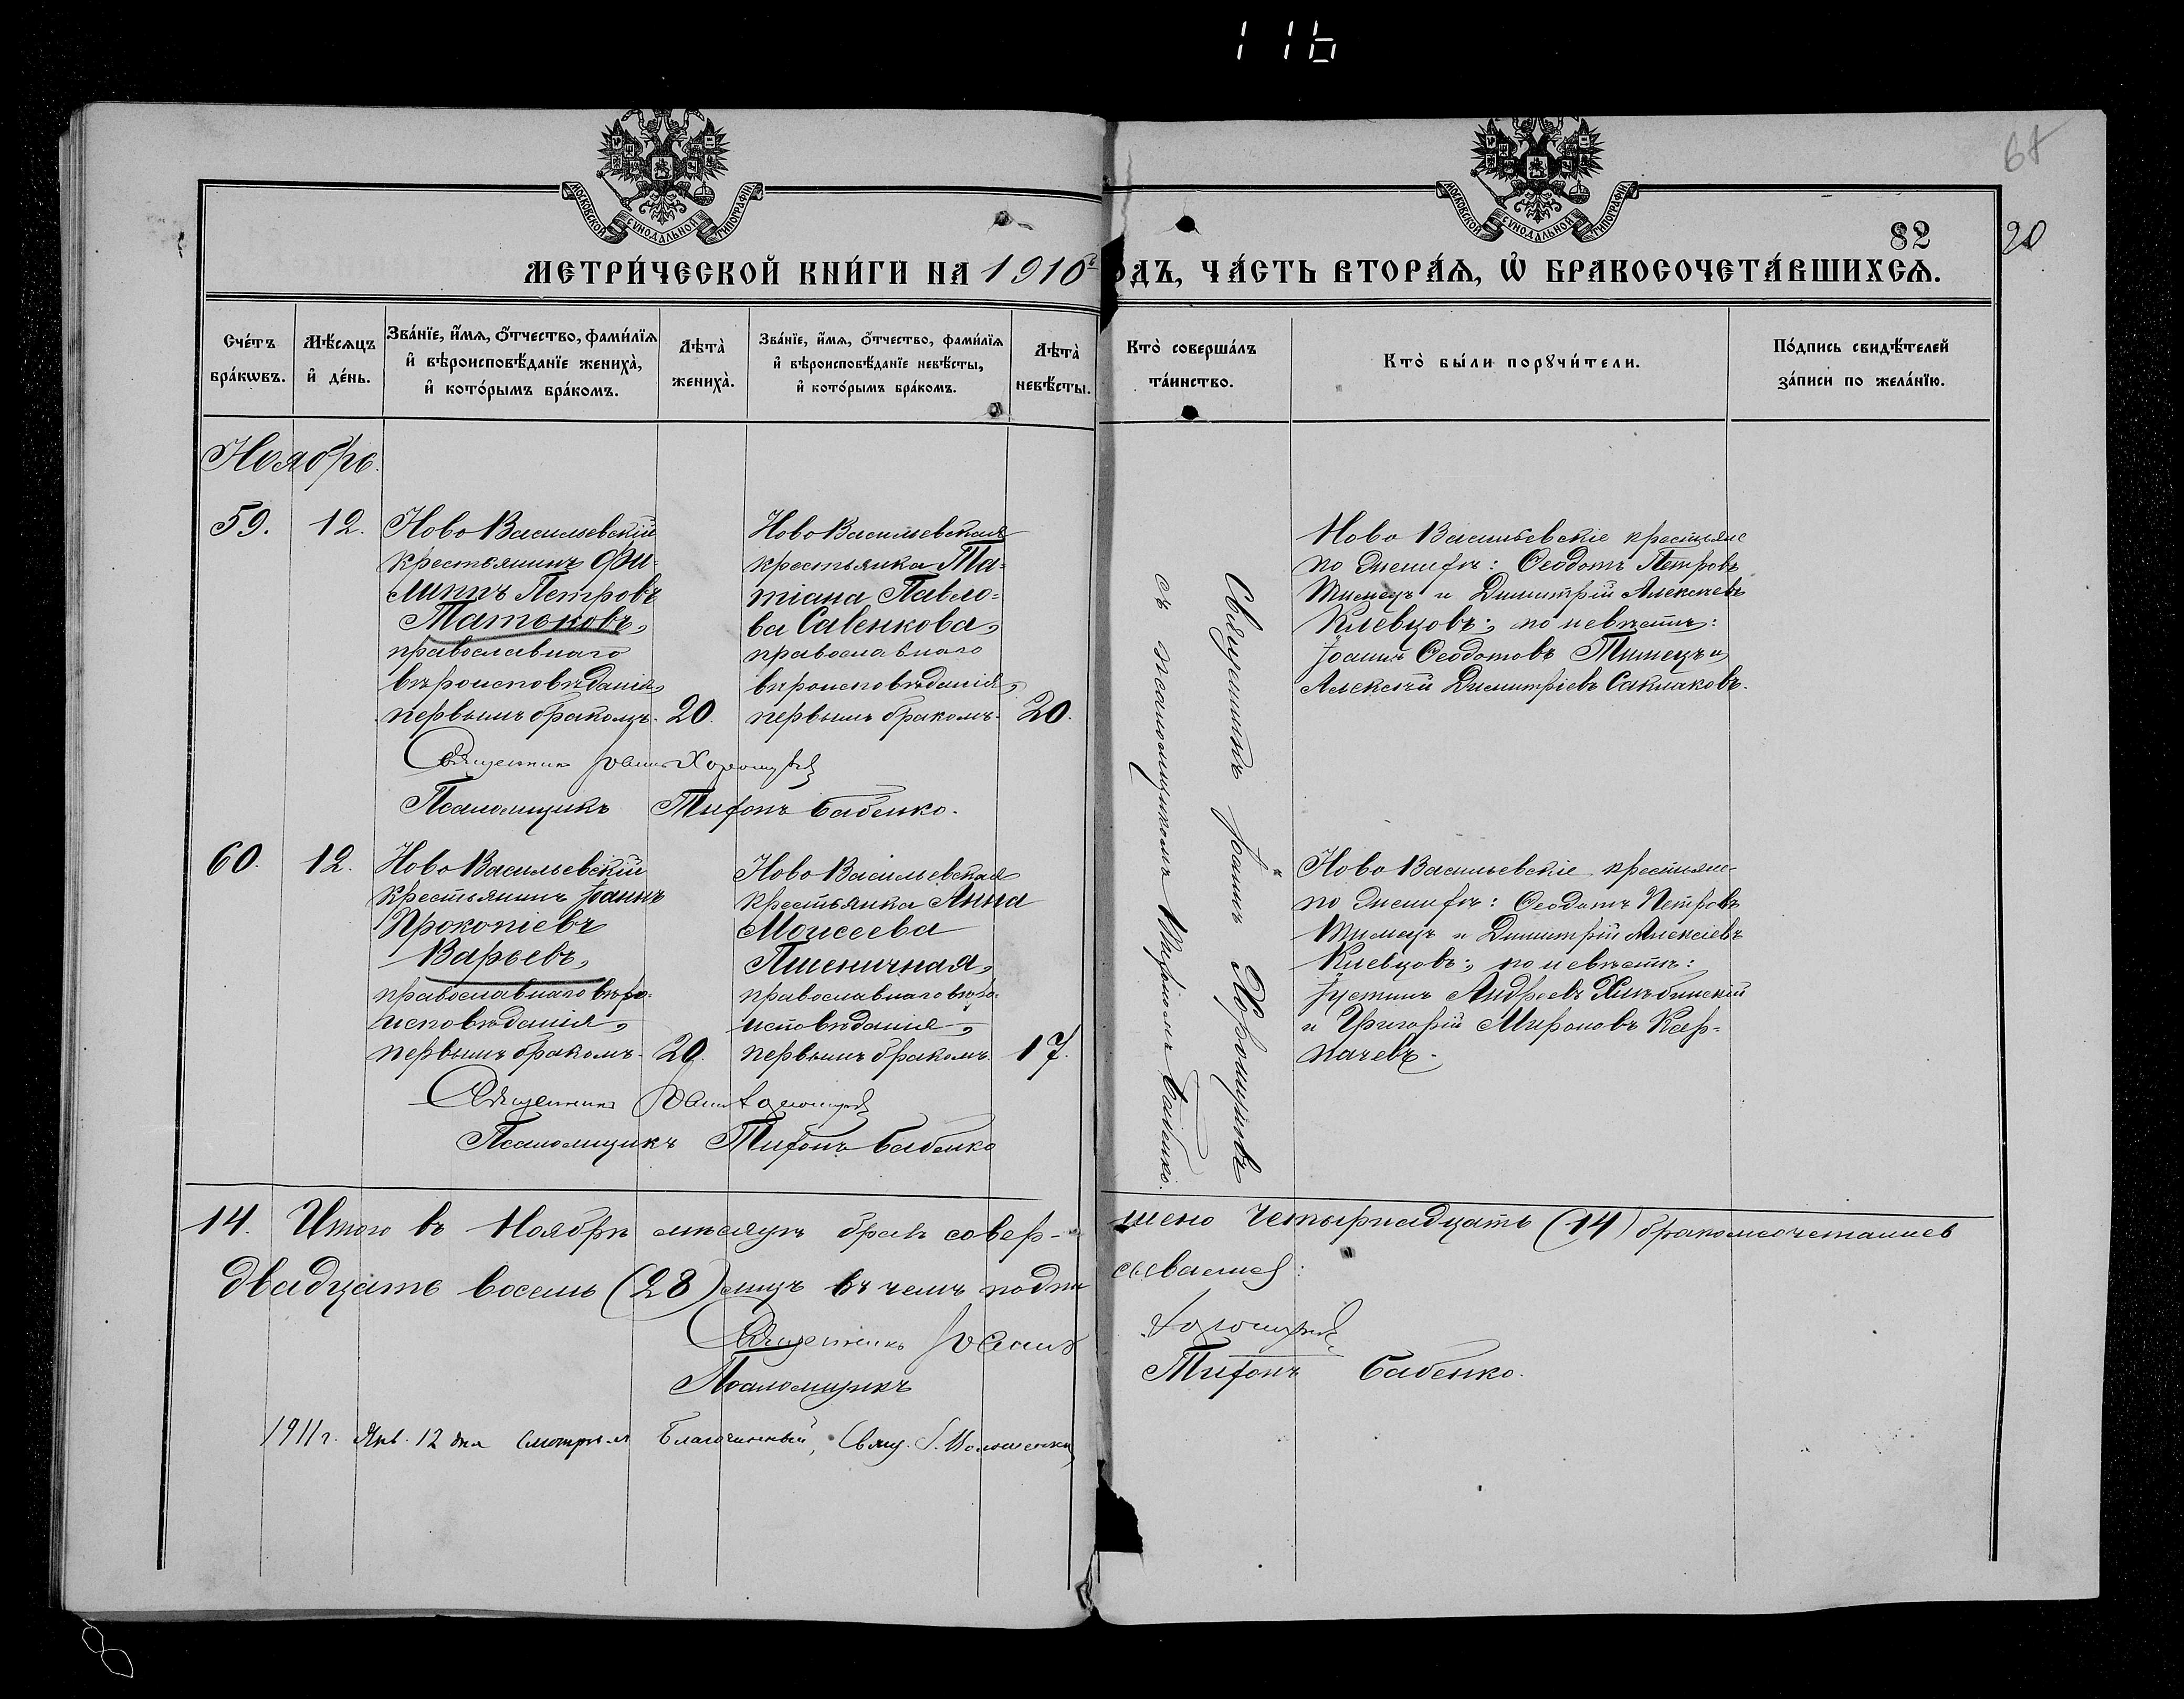 116
68
МОСКОВСКОЙ СѴНОДАЛЬНОЙ ТИПОГРАФІИ
МОСКОВСКОЙ СѴНОДАЛЬНОЙ ТИПОГРАФІИ
82
20
МЕТРИ́ЧЕСКОЙ КНИ́ГИ НА 1910 ОДЪ, ЧА́СТЬ ВТОРА́Ѧ, Ѡ҆ БРАКОСОЧЕТА́ВШИХСѦ.
Сче́тъ бра́кѡвъ.
Мѣ́сѧцъ и҆ де́нь.
Зва́нїе, и҆́мѧ, о҆́тчество, фами́лїѧ и҆ вѣроисповѣ́данїе жениха̀, и҆ кото́рымъ бра́комъ.
Лѣта̀ жениха̀.
Зва́нїе, и҆́мѧ, о҆́тчество, фами́лїѧ и҆ вѣроисповѣ́данїе невѣ́сты, и҆ кото́рымъ бра́комъ.
Лѣта̀ невѣ́сты.
Кто̀ соверша́лъ та́инство.
Кто̀ бы́ли порꙋчи́тели.
По́дпись свидѣ́телей за́писи по жела́нїю.
Ноябрь.
59.
12.
Ново Васильевскій
крестьянинъ Фи-
липпъ Петровъ
Татьковъ,
православнаго
вѣроисповѣданія,
первымъ бракомъ.
20.
Ново Васильевская
крестьянка Та-
тіана Павло-
ва Савенкова,
православнаго
вѣроисповѣданія,
первымъ бракомъ.
20.
Священникъ Іоаннъ Хорошуновъ
съ псаломщикомъ Тифономъ Бабенко.
Ново Васильевскіе крестьяне
по женихѣ: Ѳеодотъ Петровъ
Тимецъ и Димитрій Алексѣевъ
Киевцовъ; по невѣстѣ:
Іоаннъ Ѳеодотовъ Тимецъ и
Алексѣй Димитріевъ Саклаковъ.
Священникъ Іоаннъ Хорошуновъ
Псаломщикъ Тифонъ Бабенко.
60.
12.
Ново Васильевскій
крестьянинъ Іоаннъ
Прокопіевъ
Варьевъ,
православнаго вѣро-
исповѣданія,
первымъ бракомъ.
20.
Ново Васильевская
крестьянка Анна
Моисеева
Пшеничная,
православнаго вѣро-
исповѣданія,
первымъ бракомъ.
17.
Ново Васильевскіе крестьяне
по женихѣ: Ѳеодотъ Петровъ
Тимецъ и Димитрій Алексѣевъ
Киевцовъ; по невѣстѣ:
Іустинъ Андреевъ Хлѣбинскій
и Григорій Мироновъ Кар-
пачевъ.
Священникъ Іоаннъ Хорошуновъ
Псаломщикъ Тифонъ Бабенко
14. Итого въ Ноябрѣ мѣсяцѣ бракъ совер-шено четырнадцать (14) бракомсочетаниев
двадцать восемь (28) лицъ въ чемъ подписываемся:
Священникъ Іоаннъ Хорошуновъ
Псаломщикъ Тифонъ Бабенко.
1911 г. Янв. 12 дня Смотрѣлъ Благочинный, Свящ.
8